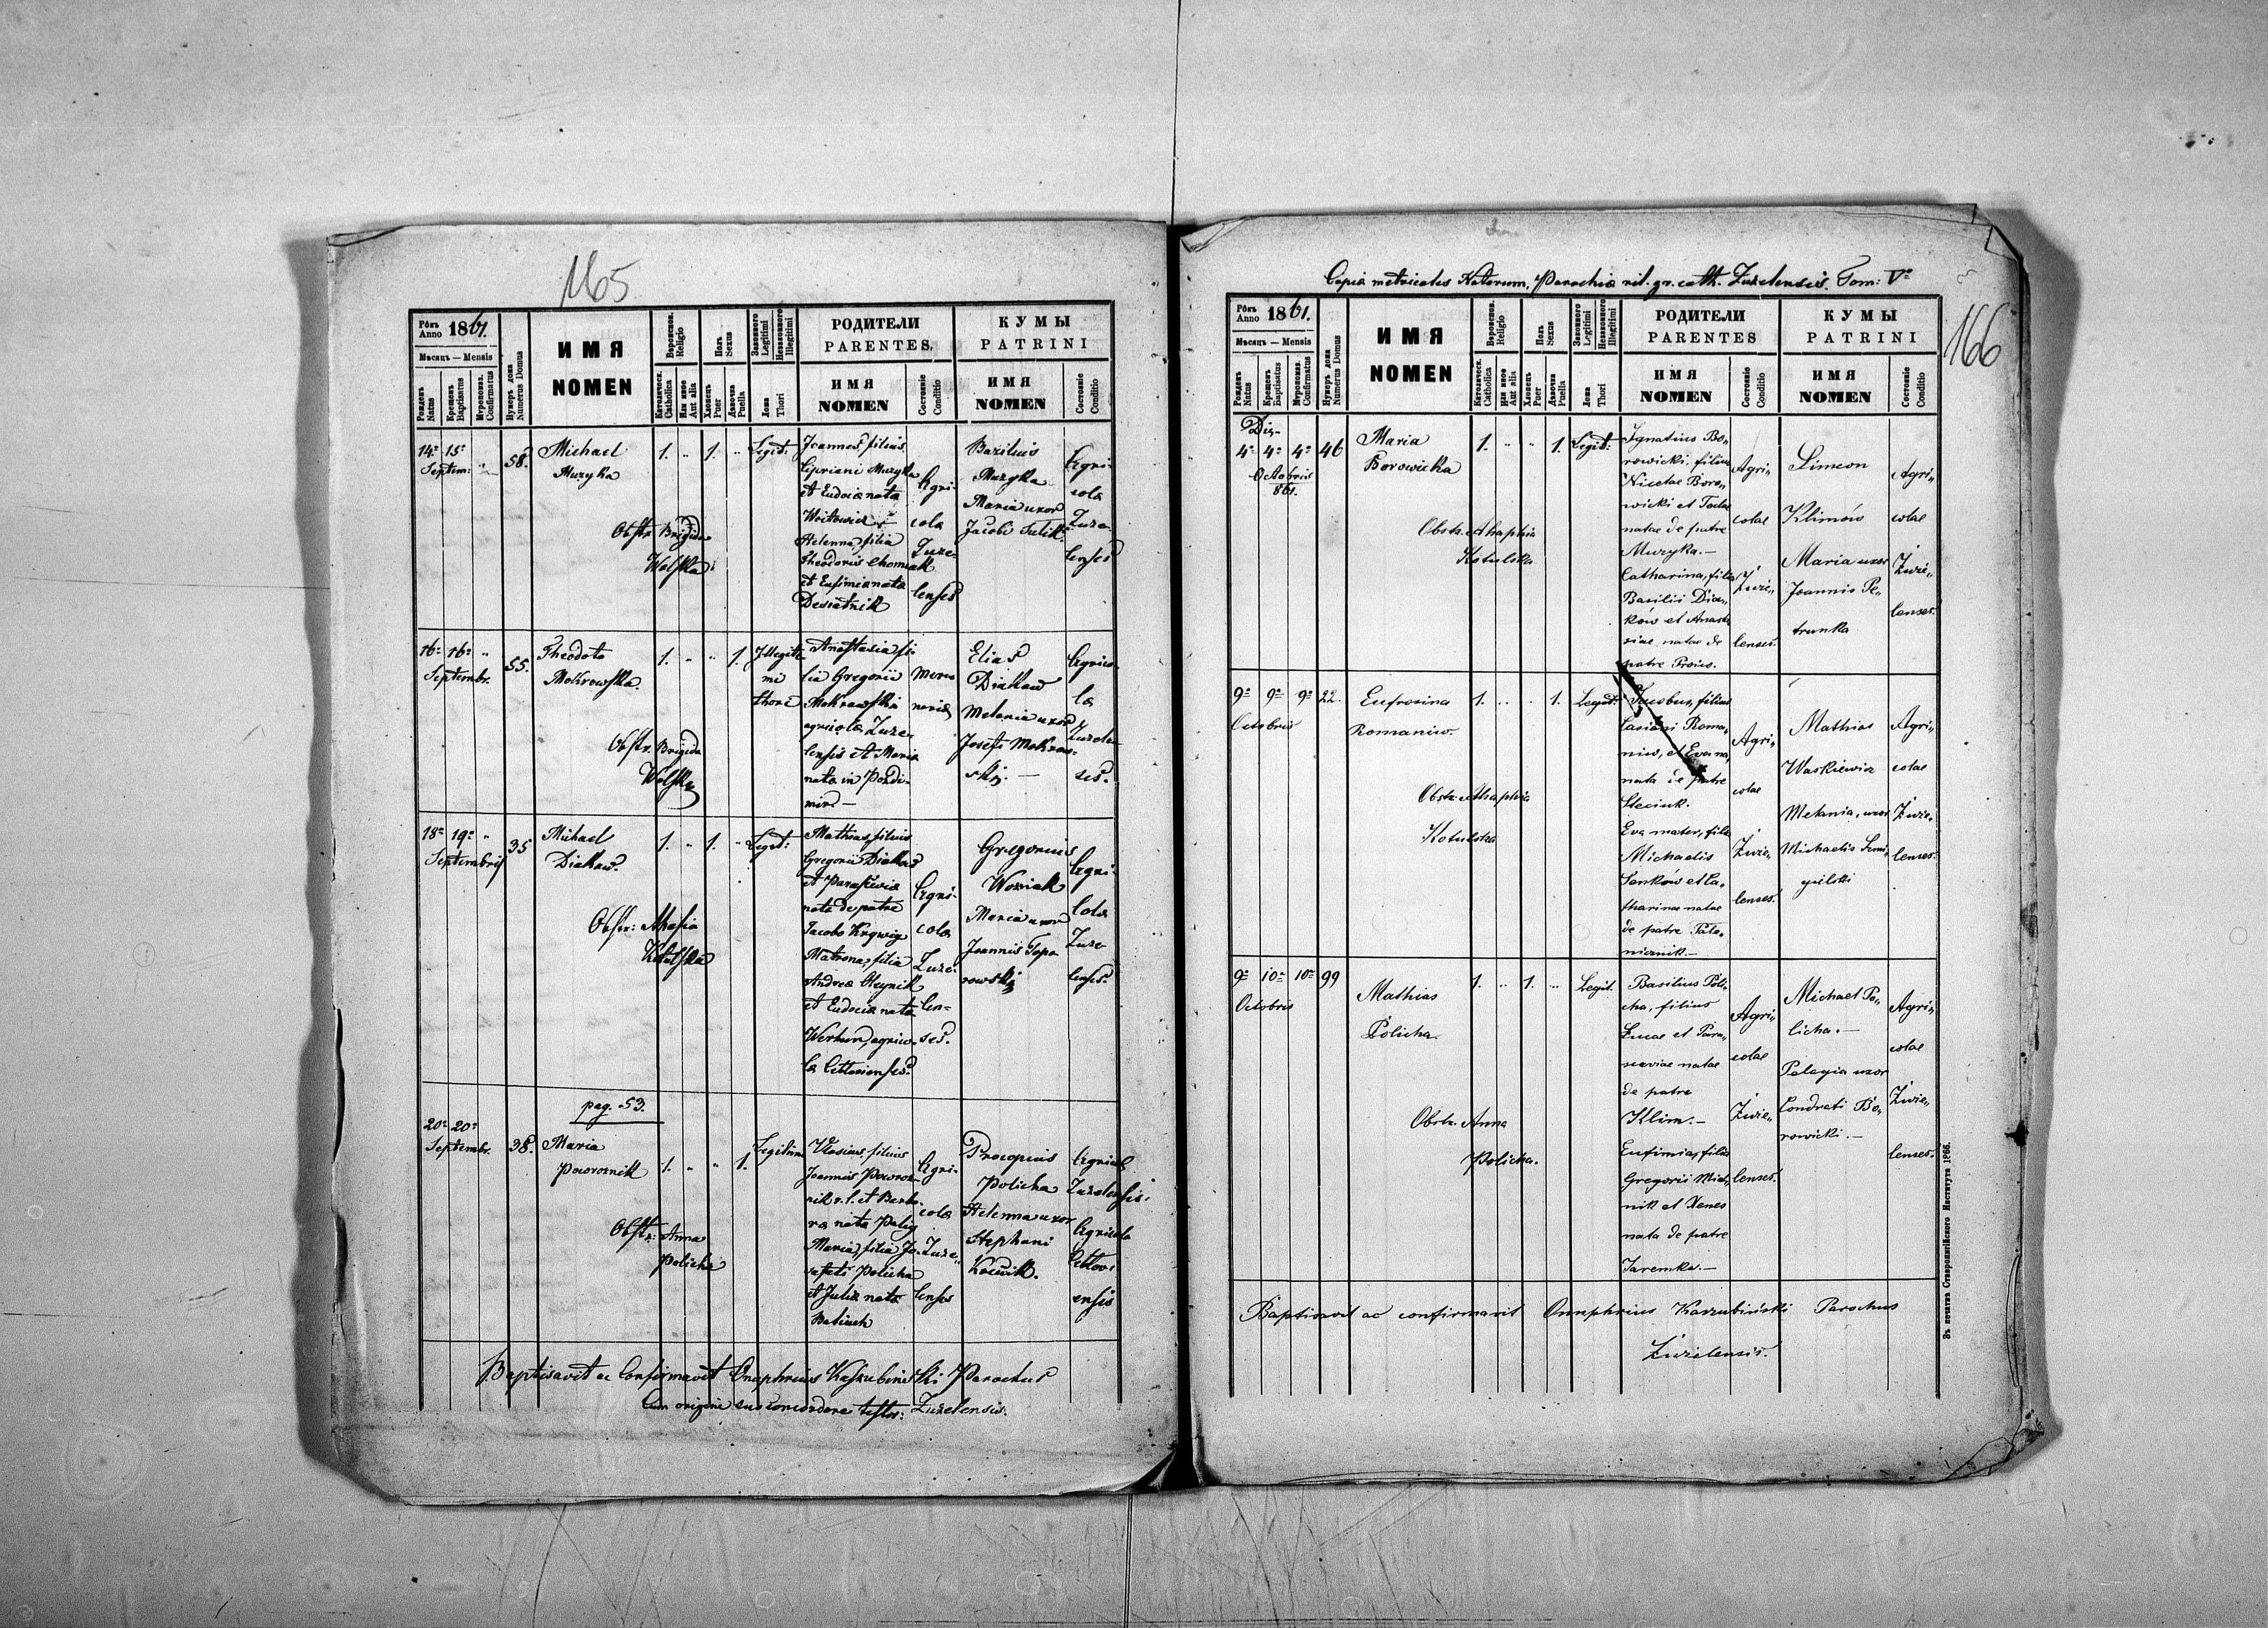 165
Рôкъ Anno 1861.
Мѣсяцъ — Mensis
Рожденъ Natus
Крещенъ Baptisatus
Мѵропомаз. Confirmatus
Нумеръ дома Numerus Domus
ИМЯ
NOMEN
Вѣроиспов. Religio
Католическ. Catholica
Или иное Aut alia
Полъ Sexus
Хлопецъ Puer
Дѣвочка Puella
Законного Legitimi
Незаконного Illegitimi
Ложа Thori
РОДИТЕЛИ
PARENTES.
ИМЯ
NOMEN
Состояніе Conditio
КУМЫ
PATRINI
ИМЯ
NOMEN
Состояніе Conditio
14a 15a
Septem:
58.
Michael
Muzyka
Obstr. Brigida
Wolska
1. „ 1. „
Legit:
Joannes filius
Cipriani Muzyka
et Eudocia nata
Woitowicz
Helenna, filia
Theodoris Chomiak
et Eufimia nata
Desiatnik
Agri-
cola
Zuze-
lenses
Bazilius
Muzyka
Maria uxor
Jacobi Tulik.
Agri-
cola
Zuze-
lenses
16a 16a „
Septembr.
55.
Theodota
Mokrowska.
Obstr. Brigida
Wolska
1. „ „ 1.
Illegiti-
mi
thori
Anastasia fi-
lia Gregorii
Mokrowski
agricola Zuze-
lensis et Maria
nata in Pozdi-
mir. —
Merce
naria
Elias
Diakow
Melania uxor
Josefi Mokrow-
skij. —
Agrico-
la
Zuzelen-
ses.
18a 19a „
Septembris
35
Michael
Diakow.
Obstr: Ahafia
Kotulska
1. „ 1. „
Legit:
Mathias, filius
Gregorii Diakow
et Paraskewia
nata de patre
Jacobo Krywiy
Matrona, filia
Andrea Oleynik
et Eudocia nata
Werhun, agrico-
la
Agri-
cola
Zuze-
len-
ses.
Gregorius
Wozniak
Maria uxor
Joannis Topo-
rowskij
Agri-
cola
Zuze-
lenses.
pag. 53.
20a 20a
Septembr.
38.
Maria
Poworoznik
Obstr: Anna
Policha
1. „ „ 1.
Legitima
Vlasius, filius
Joannis Poworoz-
nik r. l. et Barba-
ra nata Paliy
Maria, filia Jo-
safati Policha
et Julia nata
Agri-
cola
Zuze-
lenses
Procopius
Policha
Helenna uxor
Stephani
Agricola
Zuzelensis.
Agricola
ensis
Baptisavit ac Confirmavit Onuphrius Kaszubinski Parochus
Cum origine suo concordare testor: Zuzelensis.
Copia metricales Natorum, Parochia rit. gr. cath. Zuzelensis. Tom: Vo
166
Рôкъ Anno 1861.
Мѣсяцъ — Mensis
Рожденъ Natus
Крещенъ Baptisatus
Мѵропомаз. Confirmatus
Нумеръ дома Numerus Domus
ИМЯ
NOMEN
Вѣроиспов. Religio
Католическ. Catholica
Или иное Aut alia
Полъ Sexus
Хлопецъ Puer
Дѣвочка Puella
Законного Legitimi
Незаконного Illegitimi
Ложа Thori
РОДИТЕЛИ
PARENTES
ИМЯ
NOMEN
Состояніе Conditio
КУМЫ
PATRINI
ИМЯ
NOMEN
Состояніе Conditio
Die
4a 4a 4a
Octobris
861.
46
Maria
Borowicka
Obstr. Ahaphia
Kotulska
1. „ „ 1.
Legit:
Ignatius Bo„
rowicki, filius
Nicetae Boro„
wicki et Teclae
natae de patre
Muzyka. —
Catharina, filia
Basilii Dia„
ków et Anasta
siae natae de
patre Froius.
Agri„
colae
Żuże„
lenses.
Simeon
Klimów
Maria uxor
Joannis Pe„
trunka
Agri„
colae
Żuże„
lenses.
9a 9a 9a
Octobris
22.
Eufrosina
Romaniw.
Obstr. Ahaphia
Kotulska
1. „ „ 1.
Legit:
Jacobus, filius
Casiani Roma„
niw, et Eva na„
nata de patre
Steciuk.
Eva mater, filia
Michaelis
Senków et Ca„
tharinae natae
de patre Pala„
nicznik. —
Agri„
colae
Żuże„
lenses.
Mathias
Waskiewicz
Melania, uxor
Michaelis Semi„
gielski
Agri„
colae
Żuże„
lenses.
9a 10a 10a
Octobris
99
Mathias
Policha.
Obstr. Anna
Policha.
1. „ 1. „
Legit.
Basilius Poli„
cha, filius
Lucae et Para„
sceviae natae
de patre
Klim. —
Eufimia, filia
Gregorii Miel„
nik et Xenes
nata de patre
Jaremka. —
Agri„
colae
Żuże„
lenses.
Michael Po„
licha. —
Pelagia uxor
Condrati Bo„
rowicki. —
Agri„
colae
Żuże„
lenses.
Baptisavit ac confirmavit Onuphrius Kaszubiński Parochus
Żuzelensis.
Зъ печатнѣ Ставропигійского Института 1866.